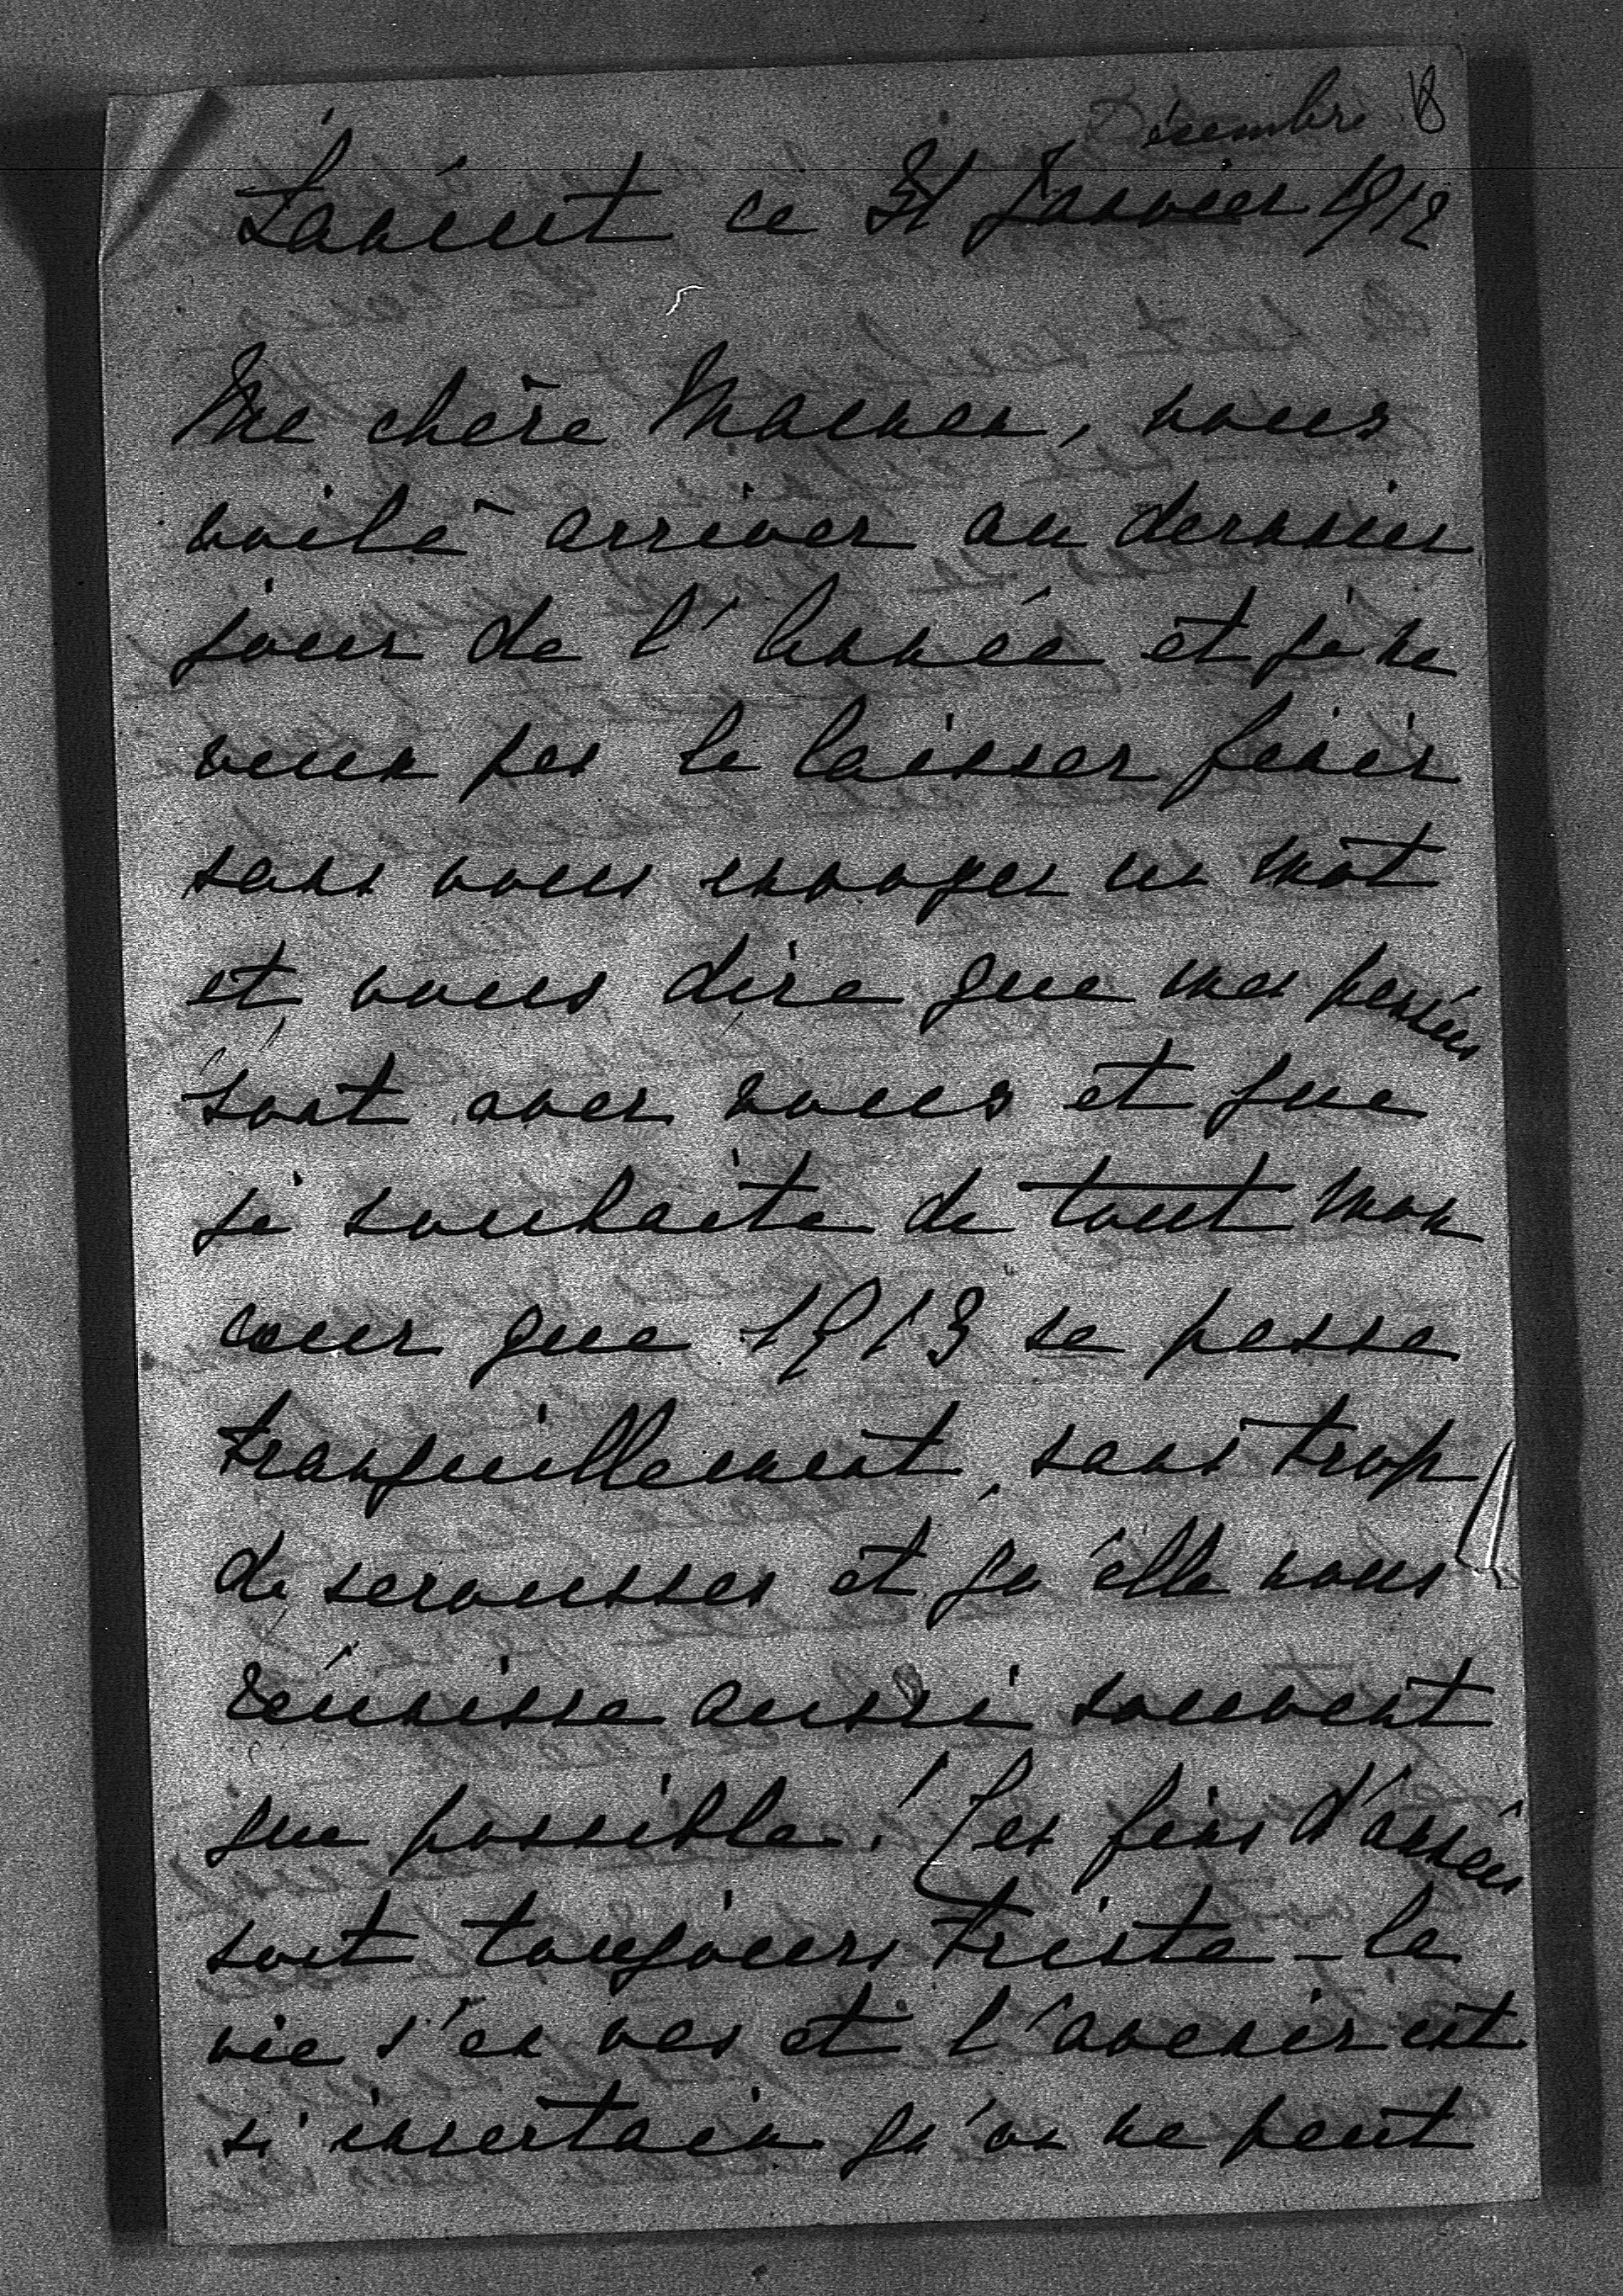 Décembre 18
Laneut ce 31 Janvier 1912
Ma chère Maman, nous
voilà arriver au dernier
jour de l'Année et je ne
veux pas le laisser finir
sans vous envoyer un mot
et vous dire que mes pensées
sont avec vous et que
je souhaite de tout mon
cœur que 1913 se passe
tranquillement, sans trop
de serousses et qu'elle nous
réunisse aussi souvent
que possible! Les fins d'années
sont toujours triste - la
vie s'en vas et l'avenir est
si insertain qu'on ne peut